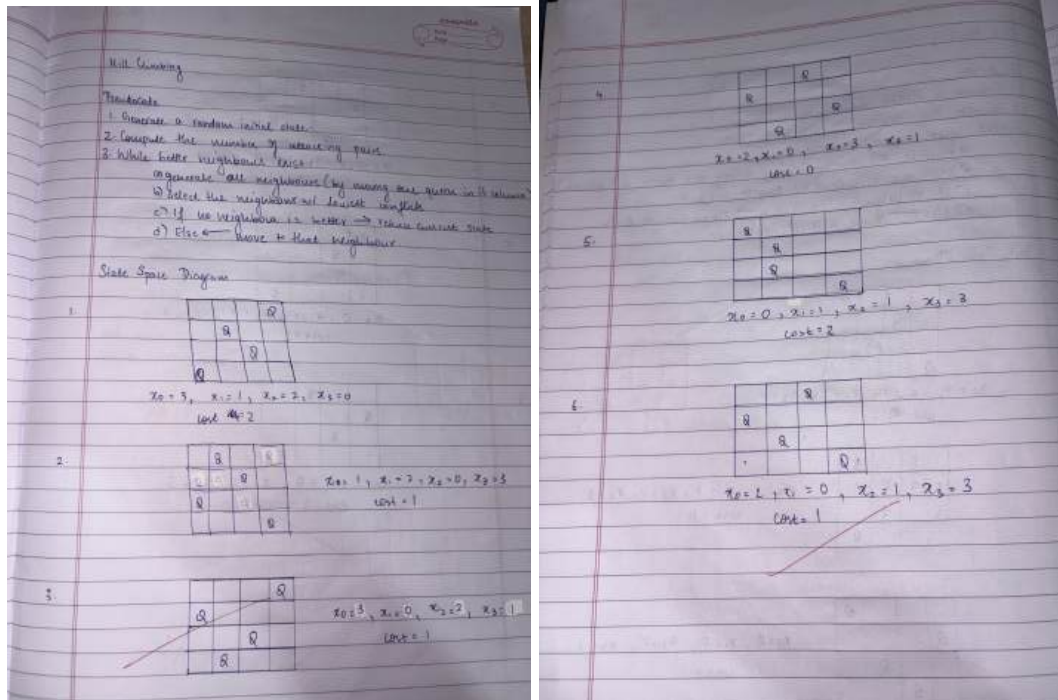 Hill Climbing
Pseudocode
1. Generate a random initial state
2. Compute the number of attacking pairs
3. While better neighbours exist:
a) generate all neighbours (by moving one queen in its column)
b) Select the neighbour w/ lowest conflicts
c) If no neighbour is better → return current state
d) Else ← move to that neighbour
State Space Diagram
1.
Q
Q
Q
Q
x₀=3, x₁=1, x₂=2, x₃=0
cost =2
2.
Q
Q
Q
Q
x₀=1, x₁=2, x₂=0, x₃=3
cost=1
3.
Q
Q
Q
Q
x₀=3, x₁=0, x₂=2, x₃=1
cost=1
4.
Q
Q
Q
Q
x₀=2, x₁=0, x₂=3, x₃=1
cost=0
5.
Q
Q
Q
Q
x₀=0, x₁=1, x₂=1, x₃=3
cost=2
6.
Q
Q
Q
Q
x₀=2, x₁=0, x₂=1, x₃=3
cost=1